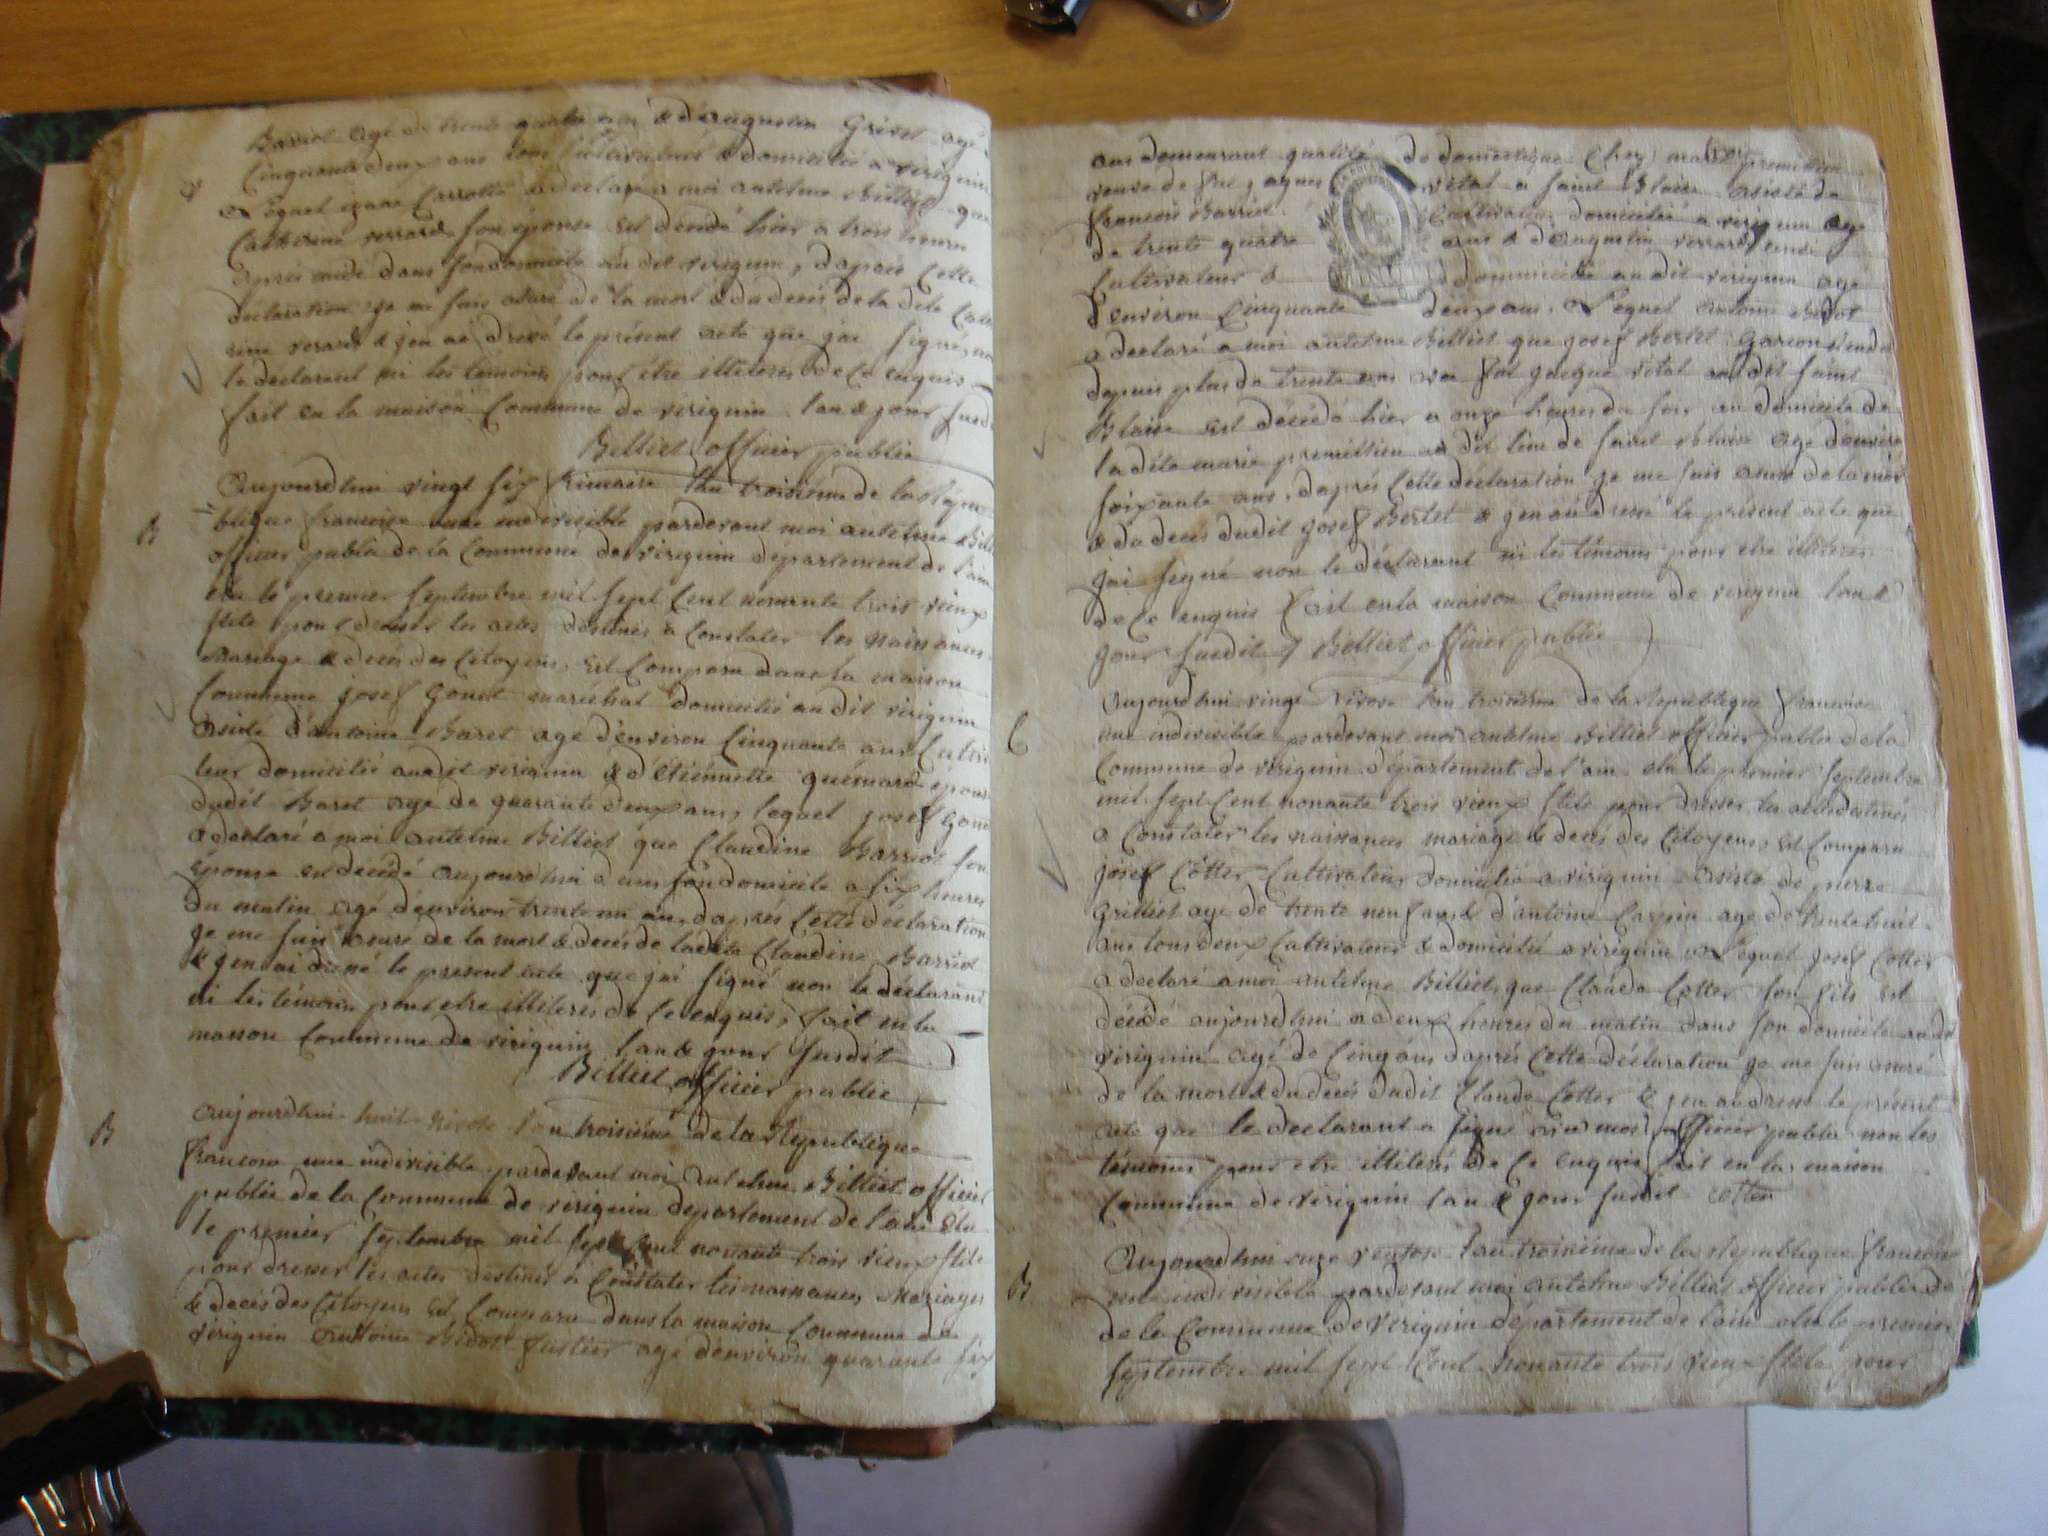 Barriot agé de trente quatre ans & d'augustin Grivet agé
Cinquante deux ans tous cultivateurs & domiciliés a virignin
Lequel Carrotte a declaré a moi antelme Billiet que
Catherine verrard son épouse est décédé hier a trois heures
après midi dans son domicile au dit virignin, daprès cette
déclaration je me suis assuré de la mort & du decès de la dite Cathe
rine verard & j'en ai dressé le présent acte que j'ai signé, non
le declarant ni les témoins pour être illiterés de ce enquis
fait en la maison Commune de virignin l'an & jour susdit
Billiet officier public
Aujourdhui vingt six frimaire l'an troisième de la Répu
blique francoise une indivisible pardevant moi antelme Billi
officier public de la Commune de virignin departement de l'ain
élu le premier septembre mil sept cent nonante trois vieux
stile pour dresser les actes destinés a Constater les naissances
Mariage & decés des Citoyens, est Comparu dans la maison
Commune josef Gonet marechal domicilié au dit virignin
assisté d'antoine Baret agé d'environ Cinquante ans Cultiva
teur domicilié audit virignin & d'étiennette quémard épouse
dudit Baret agé de quarante deux ans, lequel josef Gonet
a declaré a moi antelme Billiet que Claudine Barriot son
épouse est décédé aujourdhui dans son domicile a six heures
du matin agé d'environ trente un an, d'après cette déclaration
je me suis assuré de la mort & decés de ladite Claudine Barriot
& j'en ai dressé le present acte que j'ai signé non le declarant
ni les témoins pour etre illiterés de ce enquis, fait en la
maison Commune de virignin l'an & jour susdit
Billiet officier public
B
Aujourdhui huit nivose l'an troisième de la République
francoise une indivisible pardevant moi antelme Billiet officier
public de la Commune de virignin departement de l'ain élu
le premier septembre mil sept cent nonante trois vieux stile
pour dresser les actes destinés a Constater les naissances Mariages
& decés des Citoyens est Comparu dans la maison Commune de
virignin Antoine Bidot fustier agé d'environ quarante six
ans demeurant qualité de domestique chez marie premillieu
veuve de vital a saint Blaise assisté de
francois Barriot Cultivateur domicilié a virignin agé
de trente quatre ans & d'augustin verrard
Cultivateur & domicilié au dit virignin agé
d'environ Cinquante deux ans, Lequel antoine Bidot
a declaré a moi antelme Billiet que josef Bertet garcon
depuis plus de trente ans jacque vital au dit saint
Blaise est décédé hier a onze heures du soir au domicile de
la dite marie premillieu au dit lieu de saint Blaise agé d'environ
soixante ans, dapres cette déclaration je me suis assuré de la mort
& du decés dudit josef Bertet & j'en ai dressé le présent acte que
j'ai signé non le déclarant ni les témoins pour etre illiterés
de ce enquis fait en la maison Commune de virignin l'an &
jour susdit Billiet officier public
Aujourdhui vingt Nivose l'an troisième de la Republique francoise
une indivisible pardevant moi antelme Billiet officier public de la
Commune de virignin département de l'ain elu le premier septembre
mil sept cent nonante trois vieux stile pour dresser les actes destinés
a Constater les naissances mariage & decés des Citoyens, est Comparu
josef Cotter Cultivateur domicilié a virignin assisté de pierre
Grilliet agé de trente neuf ans & d'antoine Carpin agé de trente huit
ans tous deux Cultivateurs & domicilié a virignin, Lequel josef Cotter
a declaré a moi antelme Billiet, que Claude Cotter son fils est
décédé aujourdhui a deux heures du matin dans son domicile au dit
virignin agé de Cinq ans d'après cette déclaration je me suis assuré
de la mort & du decés dudit Claude Cotter & j'en ai dressé le présent
acte que le declarant a signé avec moi officier public non les
témoins pour etre illiterés de ce enquis fait en la maison
Commune de virignin l'an & jour susdit Cotter
B
Aujourdhui onze ventose l'an troisième de la Republique francoise
une indivisible pardevant moi antelme Billiet officier public de
de la Commune de virignin département de l'ain elu le premier
septembre mil sept cent nonante trois vieux stile pour